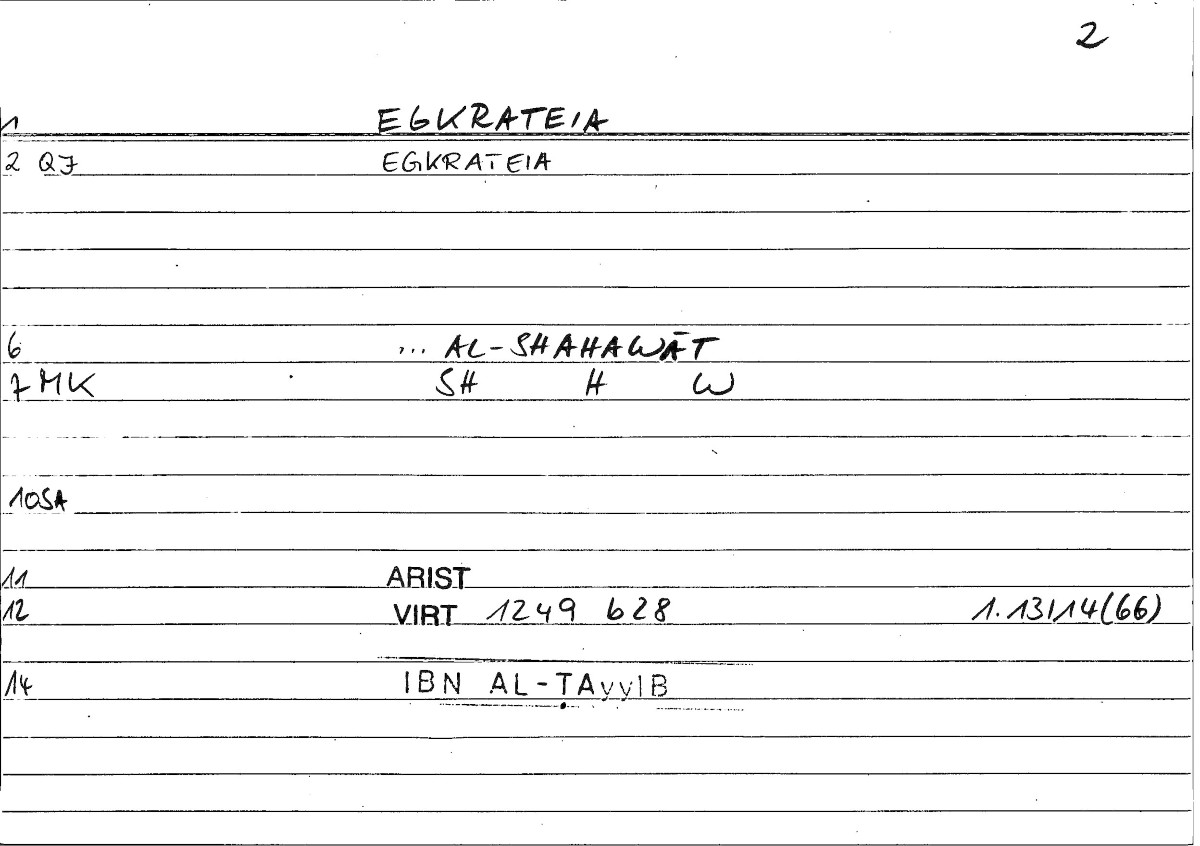 2
1 EGKRATEIA
2 QJ EGKRATEIA
6 ... AL-SHAHAWĀT
7 MK SH H W
10SA
11 ARIST
12 VIRT 1249 b28 1.13/14(66)
14 IBN AL-ṬAyyIB